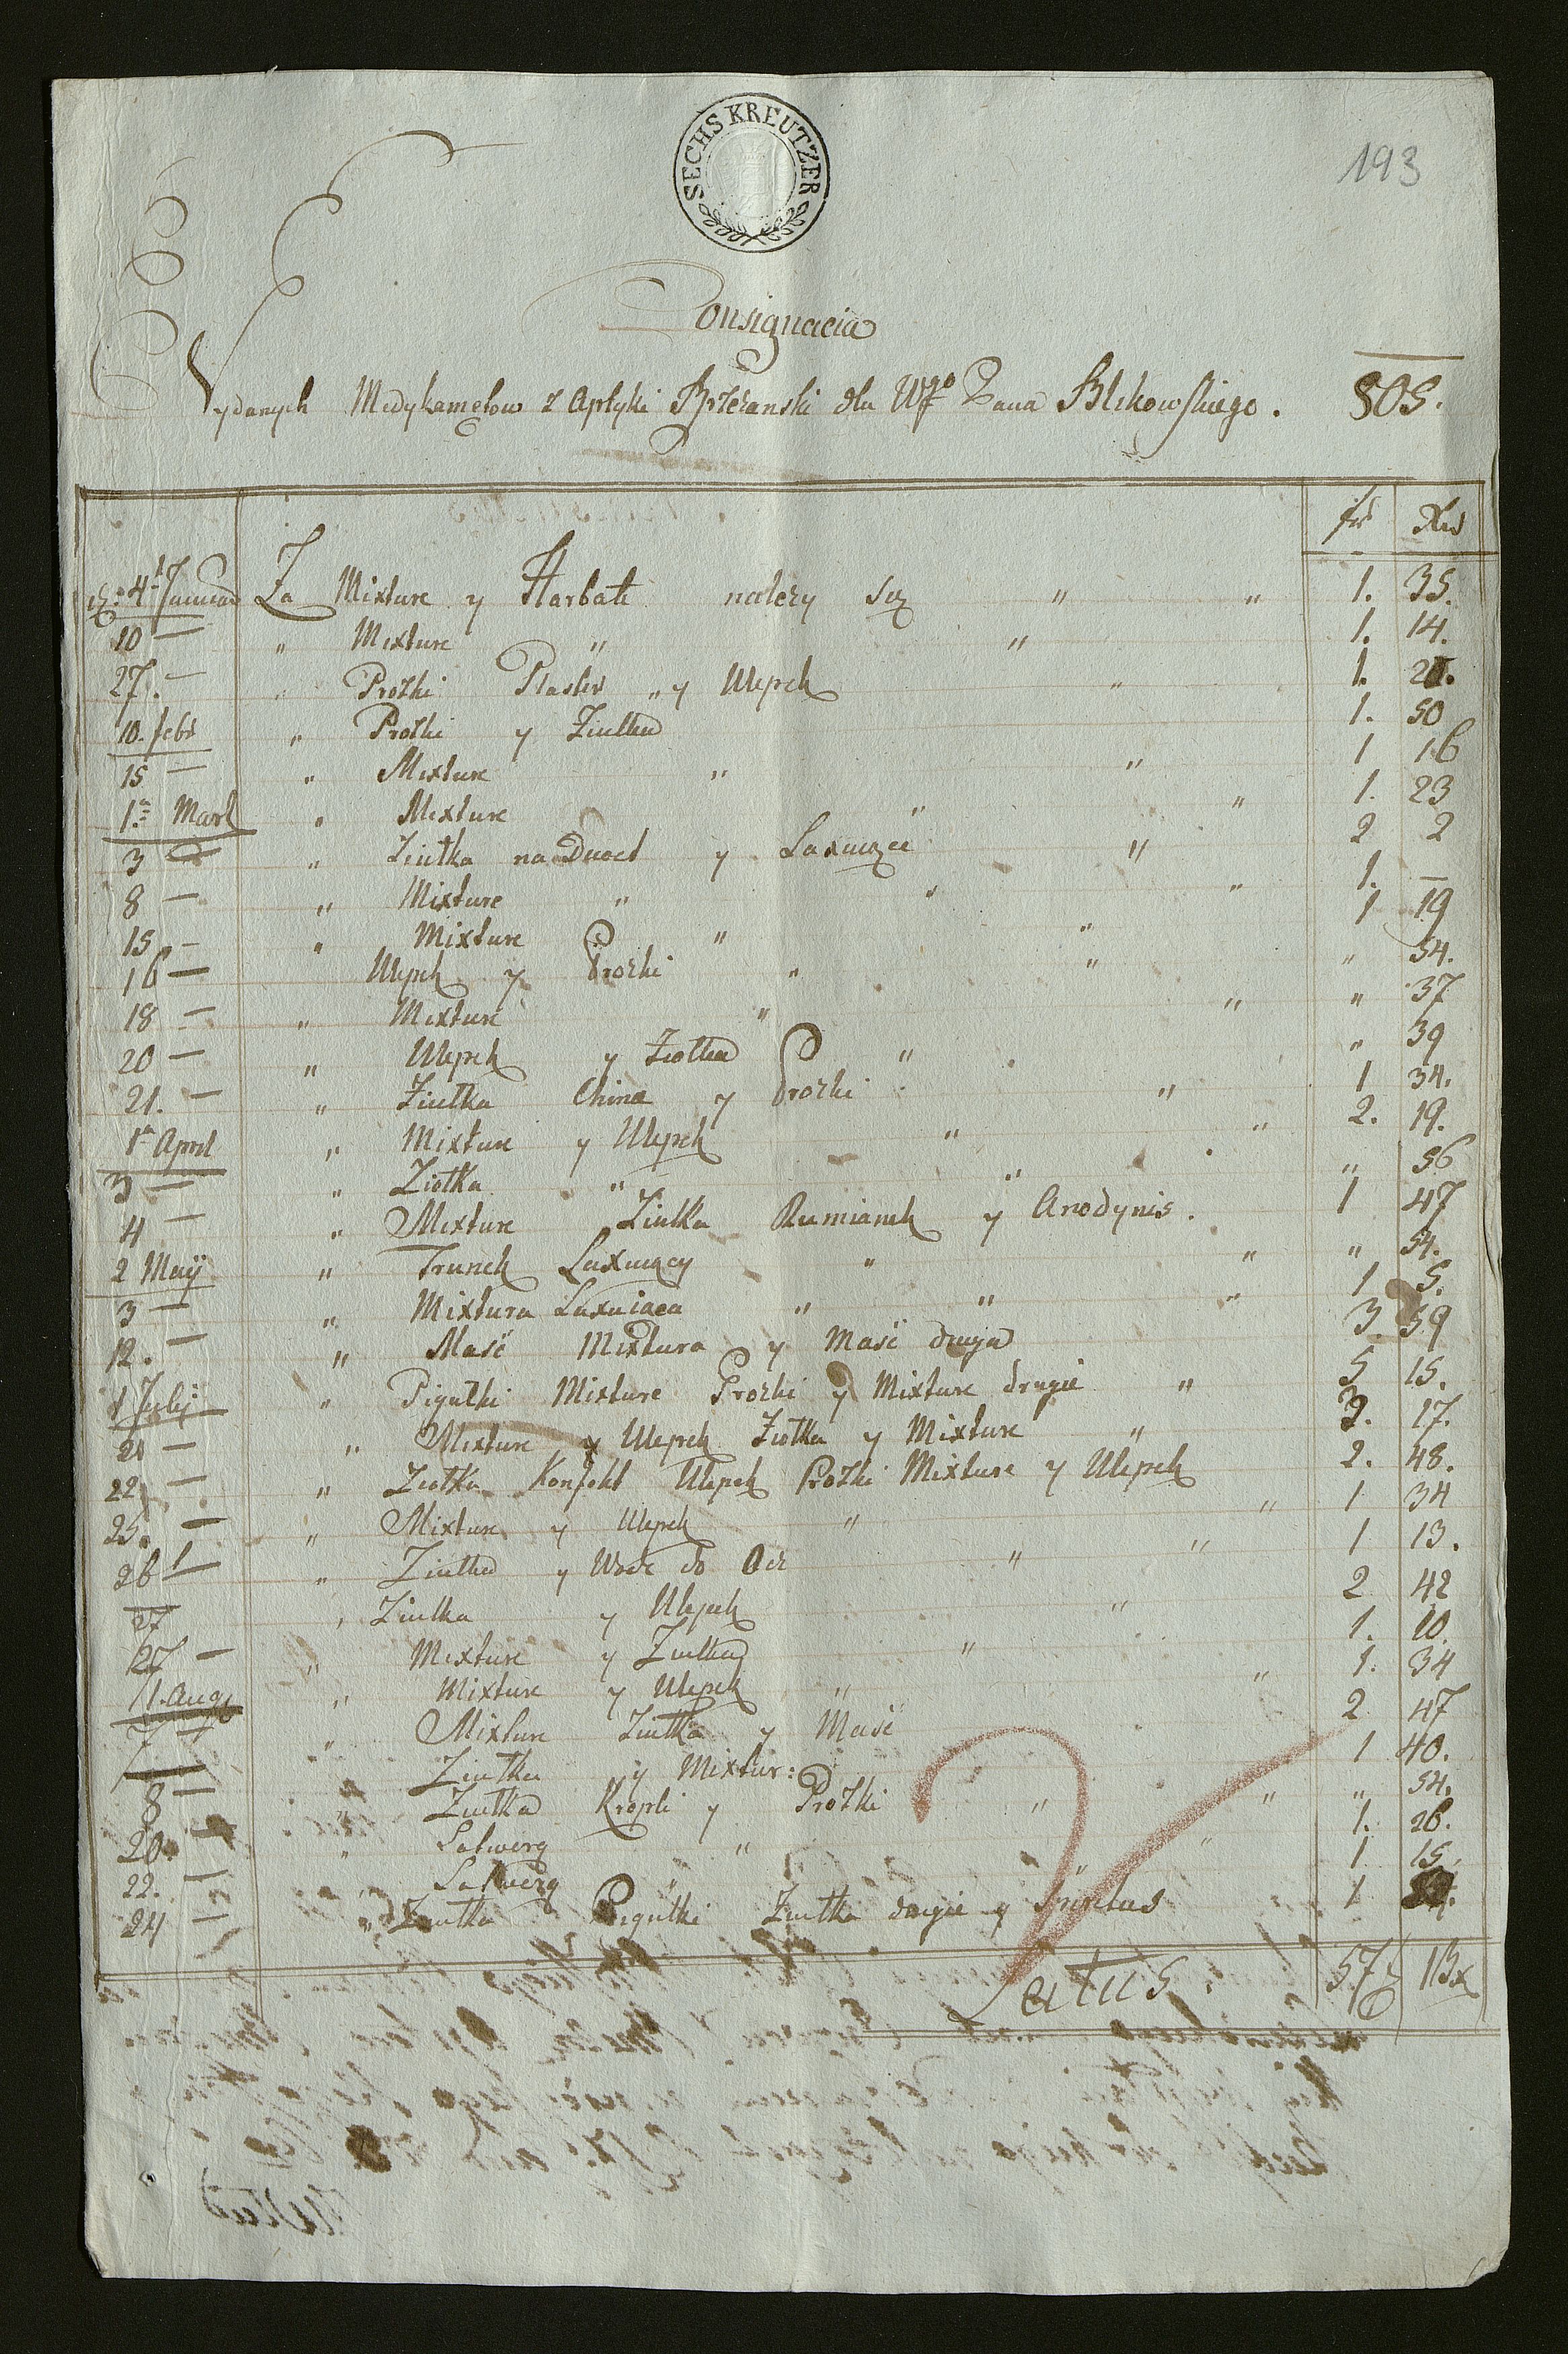 SECHS KREUTZER
193
Consignacia
Wydanych Medykametow z Aptyki Brzezanski dla Wgo Pana Blikowskiego. 505.
fr Xr
4 Januar Za Mixture y Harbate nalezy się " " 1. 35.
10 — " Mixture " " 1. 14.
27. — " Prozki Plaster " y Ulepek " 1.
10. febr " Prozki y Ziulka 1. 50
15 — " Mixture " " 1 16
1ª Mart " Mixture " " 1. 23
3 — " Ziułka na Duoct y Laxuięce " 2 2
8 — " Mixture " " " 1. —
15 — " Mixture " " 1 19
16 — Ulepek y Prozki " " " 54.
18 — " Mixture " " " 37
20 — " Ulepek y Ziołka " " 39
21. — " Ziułka China y Prozki " 1 34.
1ª April " Mixture y Ulepek " " 2. 19.
3 — " Ziołka " " " 56
4 — " Mixture Ziułka Rumianek y Anodynis. 1 47
2 Maij " Trunek Laxuięcy " " " 54.
3 — " Mixtura Laxuiaca " " " 1 5.
12. — " Maść Mixtura y Maść druga 3 59
1 Julij " Pigułki Mixture Prozki y Mixture drugie " 5 15.
21 — " Mixture y Ulepek Ziołka y Mixture " 3. 17.
22. — " Ziołka Konfekt Ulepek Prozki Mixture y Ulepek 2. 48.
25. — " Mixture y Ulepek " " 1 34
26 — " Ziulka y Wode do Ocz " " 1 13.
27 " Ziulka y Ulepek " 2 42
27 — " Mixture y Ziulka " 1. 10
1. Aug " Mixture y Ulepek " " 1. 34
7 — " Mixture Ziułka y Maść 2 47
Ziułka y Mixtur: 1 40.
8 — " Ziułka Kropli y Prozki " " " 54.
20. — " Latwerg " " 1. 26.
22. — " Latwerg " " 1 15.
24 — " Ziułka Pigułki Ziułka drugie y Spiritus 1
Latus. 57 f 13 x